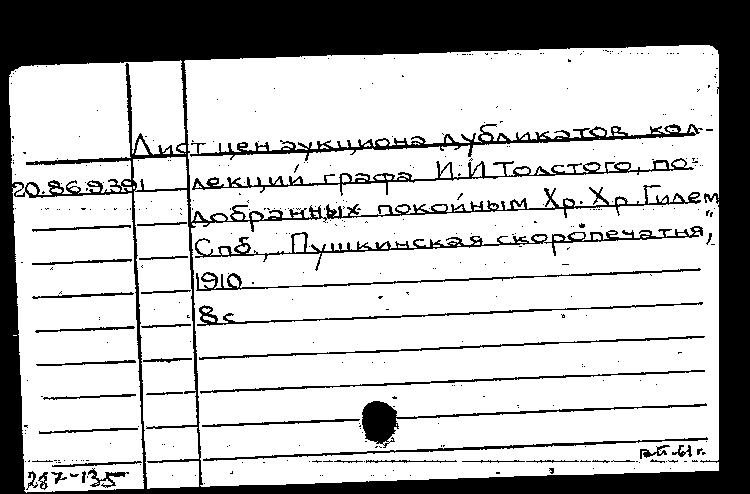 Лист цен аукциона дубликатов кол-
20.86.9.391 лекций графа И.И.Толстого, по-
добранных покойным Хр. Хр. Гилем
Спб., „Пушкинская скоропечатня,"
1910.
8 с
287-135